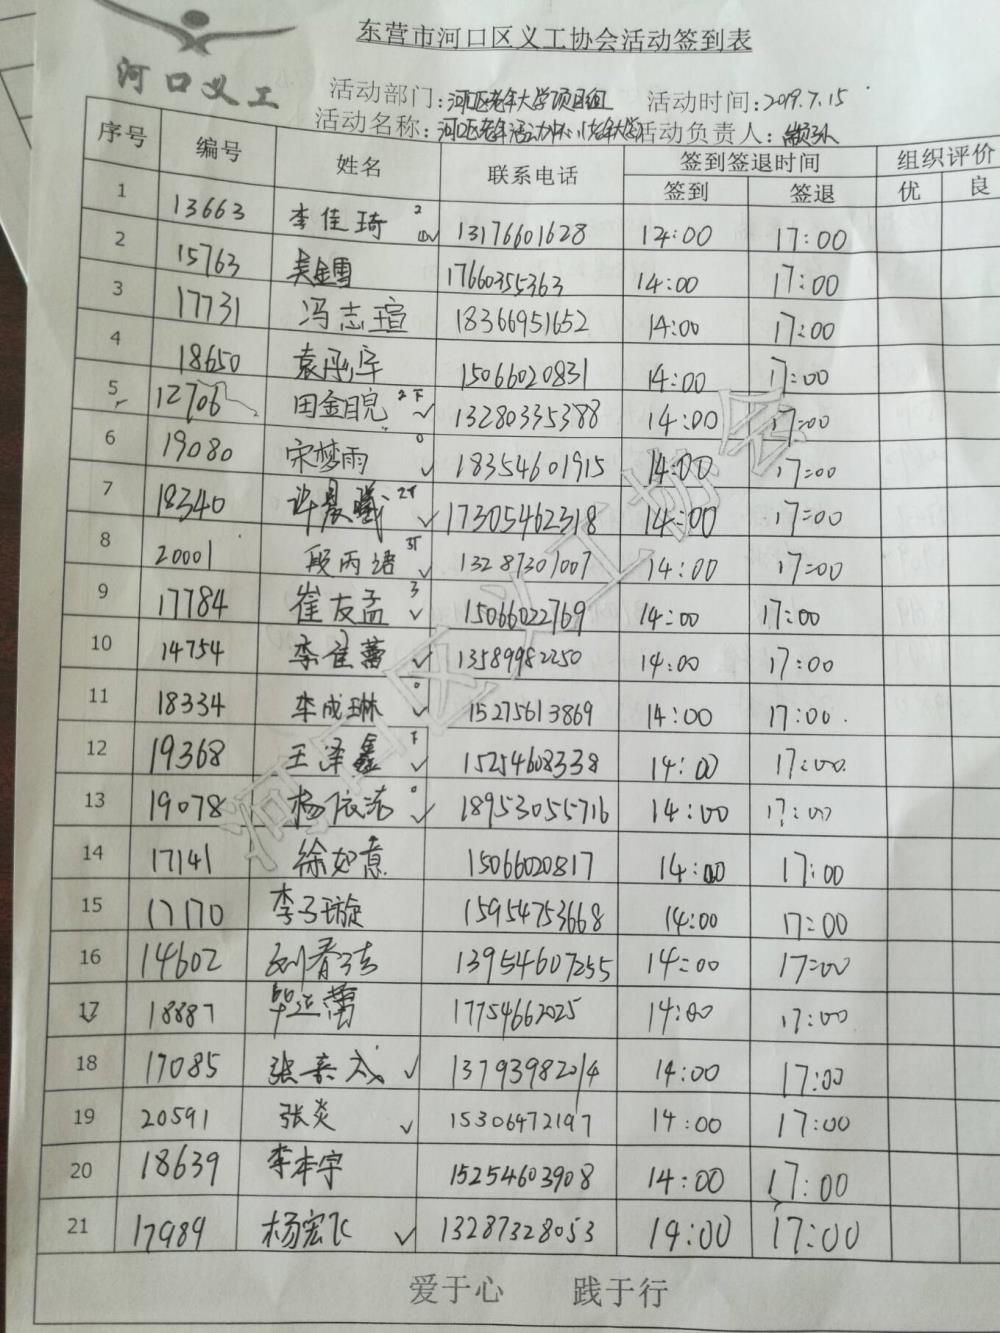 东营市河口区义工协会活动签到表
河口义工
活动部门：河口区老年大学项目组 活动时间：2019.7.15
活动名称：河口区老年活动中心(老年大学) 活动负责人：
序号 编号 姓名 联系电话 签到签退时间 组织评价
签到 签退 优 良
1 13663 李佳琦 2 13176601628 14:00 17:00
2 15763 吴金雪 17660355363 14:00 17:00
3 17731 冯志瑄 18366951652 14:00 17:00
4 18650 袁 宇 15066020831 14:00 17:00
5 12706 田金冉 2下 ✓ 13280335388 14:00 17:00
6 19080 宋梦雨 0 ✓ 18354601915 14:00 17:00
7 18340 许晨曦 2下 ✓ 17305462318 14:00 17:00
8 20001 段丙 3下 ✓ 13287307007 14:00 17:00
9 17784 崔友孟 3 ✓ 15066022769 14:00 17:00
10 14754 李佳蕾 ✓ 13589982250 14:00 17:00
11 18334 李成琳 0 ✓ 15275613869 14:00 17:00.
12 19368 王泽鑫 下 ✓ 15254608338 14:00 17:00.
13 19078 杨依 0 ✓ 18953055716 14:00 17:00
14 17141 徐如意 15066020817 14:00 17:00
15 17170 李子璇 15954753668 14:00 17:00
16 14602 刘 13954607255 14:00 17:00
17 18887 毕运蕾 17754662025 14:00 17:00
18 17085 张 成 ✓ 13793982014 14:00 17:00
19 20591 张炎 ✓ 15306472197 14:00 17:00
20 18639 李本宇 15254603908 14:00 17:00
21 17989 杨宏飞 ✓ 13287328053 14:00 17:00
河口区义工协会
爱于心 践于行